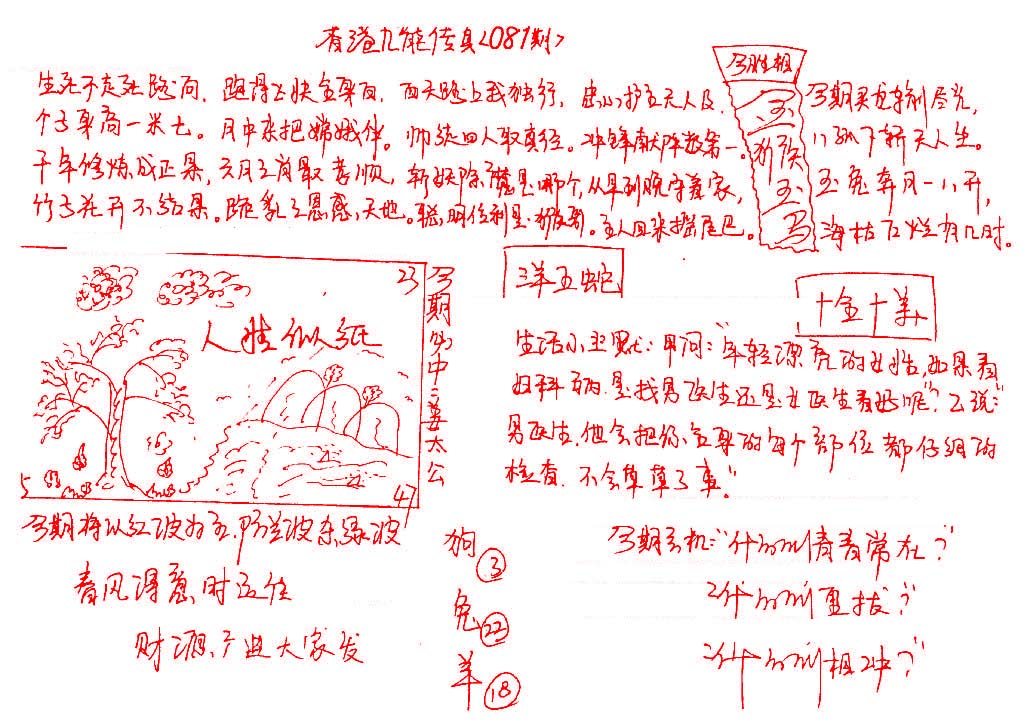 香港九龍传真<081期>
生死不走死路问，跑得飞快全身面，西天路上我独行，忠心护主无人及，
个子身高一米七。月中来把嫦娥伴。师徒四人取真经。冲锋献阵数第一。
千年修炼成正果，六月三肖最孝顺，斩妖除魔是哪个，从早到晚守着家，
竹子花开不结果。跪乳之恩感天地。聪明伶利是猴哥。主人回来摇尾巴。
今期生肖
金
猴
玉
兔天人生。
玉兔奔月一八开，
海枯石烂有几时。
23
人生似纸
5
47
今期必中三姜太公
三洋五蛇
十全十美
生活小幽默：甲问："年轻漂亮的女性，如果看
妇科病，是找男医生还是女医生看好呢"？乙说："
男医生，他会把你全身的每个部位都仔细的
检查，不会草草了事"。
今期将以红波为主，防兰波杂绿波
春风得意时运佳
财源广进大家发
狗③
兔㉒
羊⑱
今期玄机："什么青青常在？"